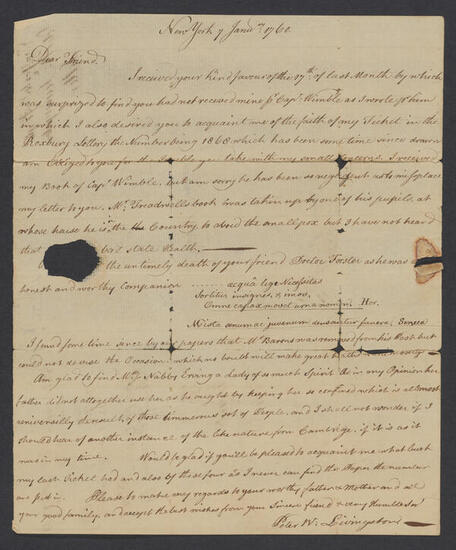 New York 7 Janry 1760.
Dear Friend
I received your kind favour of the 17th of last Month by which
was surprized to find you had not received mine pr Capt Wimble as I wrote pr him
in which I also desired you to acquaint me of the faith of my Ticket in the
Roxbury Lottery the Number being 1868 which has been some time since drawn
am obliged to you for the trouble you take with my small I received
my Book of Capt Wimble, but am sorry he has been so negligent as to misplace
my letter to you. Mr Treadwells book was taken up by one of his pupils, at
whose house he is in the Country to avoid the small pox but I have not heard
that state Health.
the untimely death of your friend Doctor Forster as he was a
honest and worthy Companion æqua lege Necessitas
Sortitur insignes, & imos,
Omne capax movet urna nomen. Hor.
Mista senum ac juvenum densantur funera, Seneca
I found some time since by our papers that Mr Barons was removed from his Post but
could not devise the Occasion which no doubt will make great
Am glad to find Miss Nabby a Lady of much Spirit as in my Opinion her
father did not altogether use her as he ought by keeping her so confined which is allmost
universally the result, of those timmerous sort of People, and I shall not wonder if I
should hear of another instance of the like nature from Cambrige, if it is as it
was in my time. Would be glad if you'll be pleased to acquaint me what luck
my last Ticket had and also by those four as I never can find the Paper the number
are put in. Please to make my regards to your worthy father & Mother and all
your good family, and accept the best wishes from your Sincere friend & very Humble Servt
Peter V. Livingston